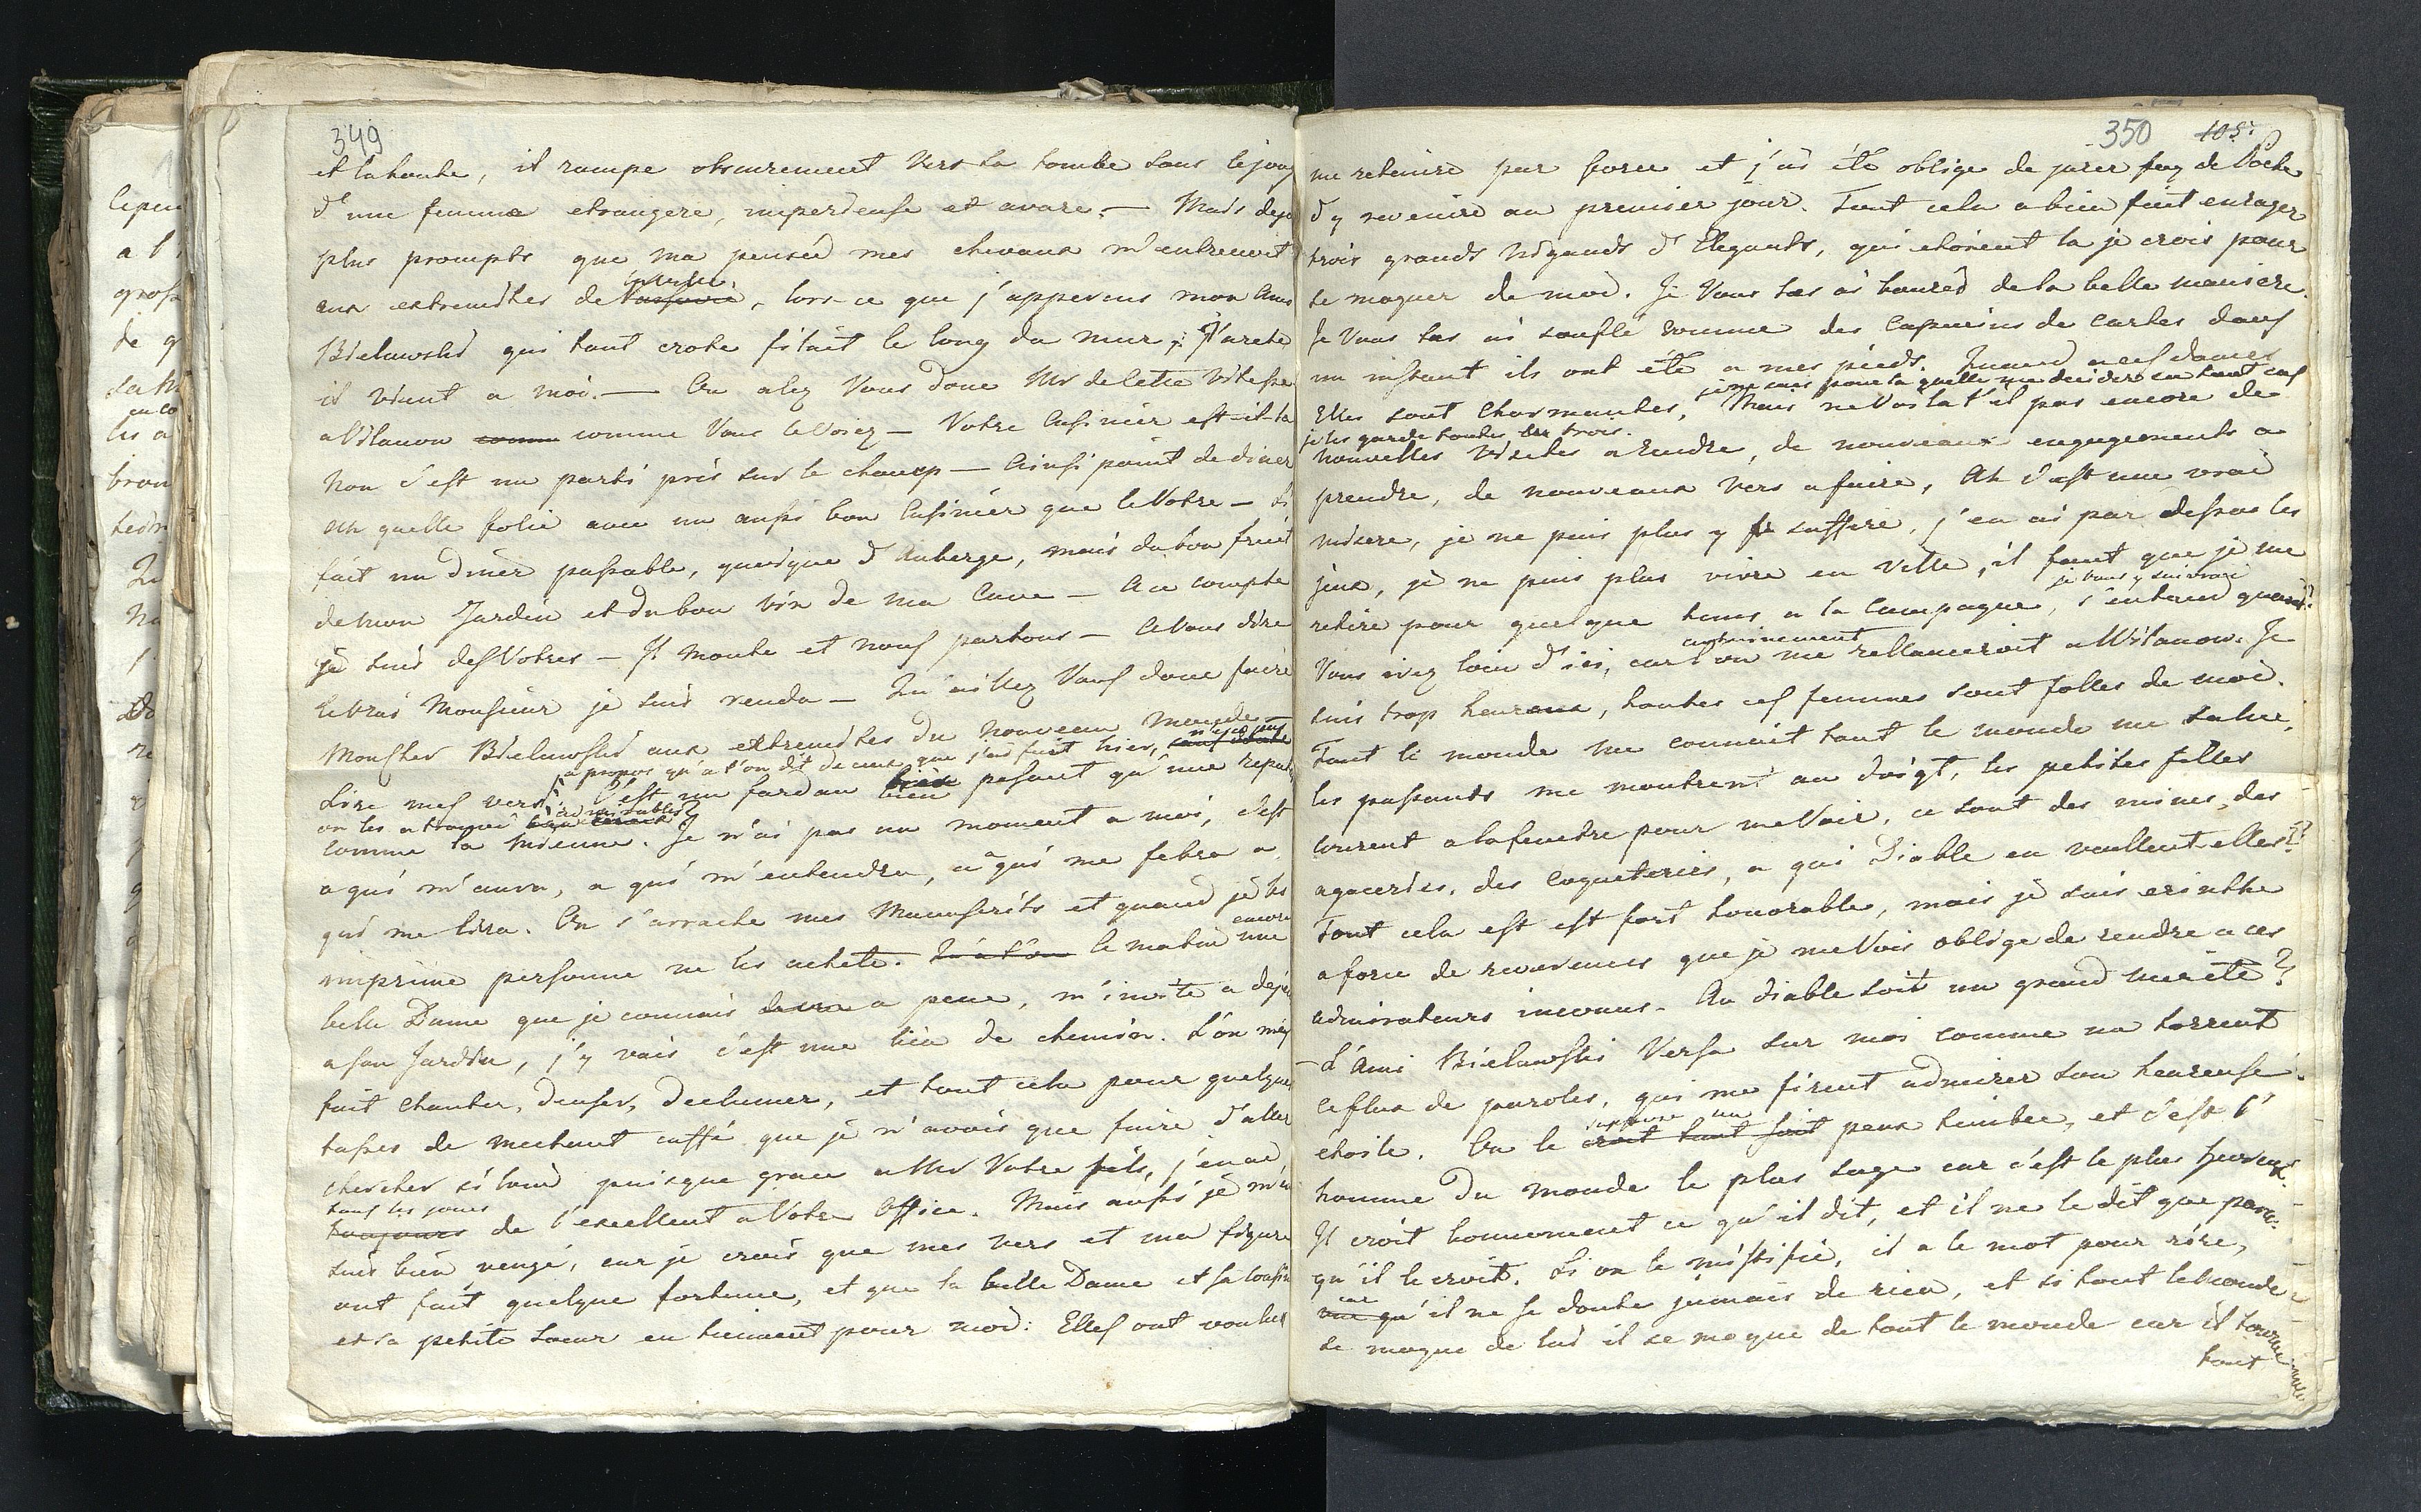 349
et la honte, il rampe obscurement vers la tombe sous le joug
d'une femme etrangere, imperieuse et avare. — Mais deja
plus prompts que ma pensée mes chevaux m'entrenent
aux extremités de Varsovie, lors-ce que j'appercus mon Ami
Bielawski qui tout croté filait le long du mur; J'arete
il vient a moi. — Ou alez Vous donc Mr de cette vitesse
a Vilanow comme comme Vous le Voiez — Votre Cusinier est-il-la
Non c'est un parti pris sur le champ — Ainsi point de diner
Ah quelle folie avec un aussi bon Cusinier que le Votre —
fait un diner passable, quoique d'Auberge, mais du bon fruit
de mon Jardin et du bon vin de ma Cave — A ce compte
je suis des Votres — Il monte et nous partons — A Vous dire
le Vrai Monsieur je suis rendu — Qu'aillez Vous donc faire
Monsieur Bielawski aux extremités du nouveau monde —
a propos qu'a t'on dit de ceux que j'ai fait hier,
Lire mes vers c'est un fardau bien pesant qu'une reput
on les a trouvé admirables?
comme la mienne. Je n'ai pas un moment a moi, c'est
a qui m'aura, a qui m'entendra, a qui me fetera a
qui me lira. On s'arrache mes Manuscrits et quand je les
imprime personne ne les achete. Qu'a t'on ce matin encore une
belle Dame que je connais a pene, m'invite a dejeu
a son Jardin, j'y vais c'est une lieu de chemin. L'on m'y
fait chanter, denser, declamer, et tout cela pour quelques
tasses de mechant caffé que je n'avais que faire d'aller
chercher si loin puisque grace a Mr Votre fils, j'en ai
tous les jours
toujours de l'excellent a Votre Office. Mais aussi je m'en
suis bien vengé, car je crois que mes vers et ma figure
ont fait quelque fortune, et que la belle Dame et sa cousine
et sa petite soeur en tiennent pour moi: Elles ont voulus
350 105.
me retenire par force et j'ai été oblige de jurer foy de Poete
d'y revenire au premier jour. Tout cela a bien fait enrager
trois grands nigauds d'Elegants, qui etoient la je crois pour
se moquer de moi. Je Vous les ai bouré de la belle maniere.
Je Vous les ai souflé comme des Capucins de cartes dans
un instant ils ont été a mes pieds. Quand a ces dames
je ne sais pour la quelle me decider en tout cas
Elles sont charmantes, Mais ne Voila t'il pas encore de
je les garde toutes les trois.
nouvelles visites a rendre, de nouveaux engagements a
prendre, de nouveaux vers a faire, Ah c'est une vrai
misere, je ne puis plus y suffire, j'en ai par dessus les
jeux, je ne puis plus vivre en Ville, il faut que je me
je Vous y suivrai
retire pour quelque tems a la Campagne, s'entend quand?
certainement
Vous irez loin d'ici, car l'on me rellanceroit a Wilanow. Je
suis trop heureux, toutes ces femmes sont folles de moi.
Tout le monde me connait tout le monde me salue,
les passants me montrent au doigt, les petites filles
courent a la fenetre pour me Voir, ce sont des mines, des
agaceries, des coqueteries, a qui Diable en veullent elles??
Tout cela est est fort honorable, mais je suis erinthe
a force de reverences que je me Vois oblige de rendre a ces
admirateurs inconus. Au diable soit un grand merite?
— L'Ami Bielawski Versa sur moi comme un torrent
ce flux de paroles, qui me firent admirer son heureuse
etoile. On le suppose un croit tout soit peux timbre, et c'est l'
homme du monde le plus sage car c'est le plus heureux.
Il croit bonnement ce qu'il dit, et il ne le dit que parce
qu'il le croit. Si on le mistifie, il a le mot pour rire,
car qu'il ne se doute jamais de rien, et si tout le monde
se moque de lui il se moque de tout le monde car il tourne
tout